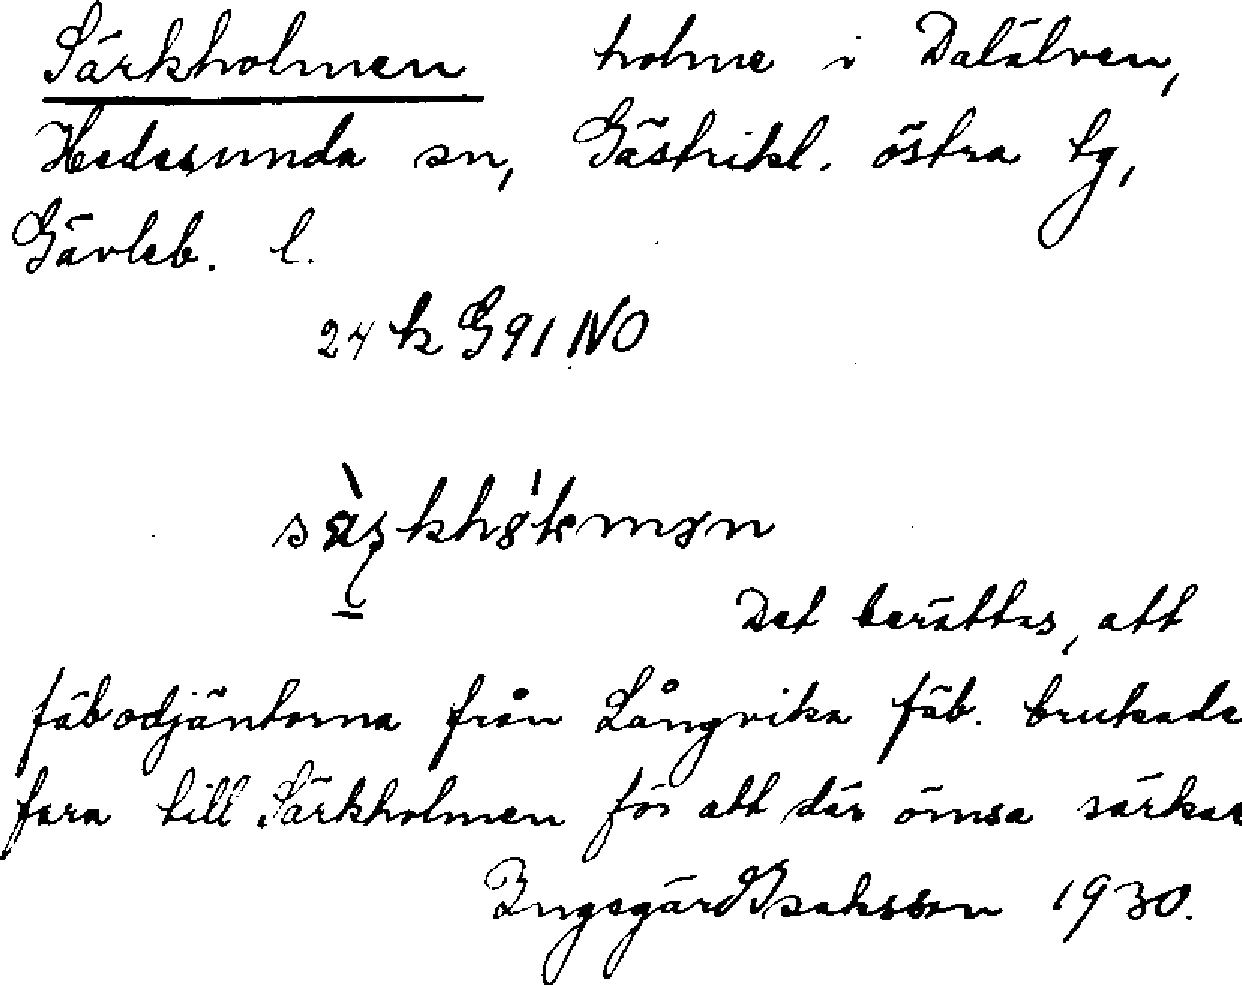 Särkholmen holme i Dalälven,
Hedesunda sn, Gästrikl. östra tg,
Gävleb. l.
24 k G 91 NO
Det berättas, att
fäbodjäntorna från Långvika fäb. brukade
fara till Särkholmen för att där ömsa särkar
Ingegärd Isaksson 1930.